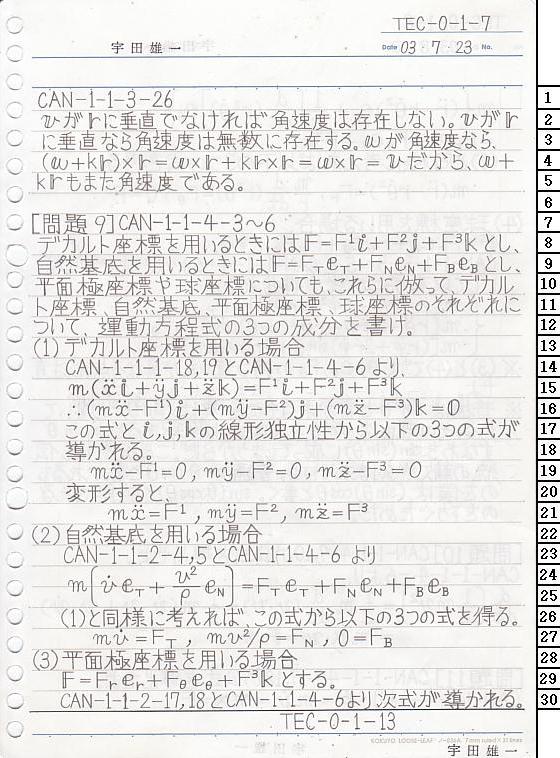 TEC-0-1-7
宇田雄一 Date 03・7・23 No.
CAN-1-1-3-26
𝕧が𝕣に垂直でなければ角速度は存在しない。𝕧が𝕣
に垂直なら角速度は無数に存在する。𝕨が角速度なら、
(𝕨+k𝕣)×𝕣=𝕨×𝕣+k𝕣×𝕣=𝕨×𝕣=𝕧だから、𝕨+
k𝕣もまた角速度である。
[問題9]CAN-1-1-4-3~6
デカルト座標を用いるときには𝔽=F¹𝕚+F²𝕛+F³𝕜とし、
自然基底を用いるときには𝔽=F_T𝕖_T+F_N𝕖_N+F_B𝕖_Bとし、
平面極座標や球座標についても、これらに倣って、デカル
ト座標、自然基底、平面極座標、球座標のそれぞれに
ついて、運動方程式の3つの成分を書け。
(1)デカルト座標を用いる場合
CAN-1-1-1-18,19とCAN-1-1-4-6より、
m(ẍ𝕚+ÿ𝕛+z̈𝕜)=F¹𝕚+F²𝕛+F³𝕜
∴(mẍ-F¹)𝕚+(mÿ-F²)𝕛+(mz̈-F³)𝕜=𝟘
この式と𝕚,𝕛,𝕜の線形独立性から以下の3つの式が
導かれる。
mẍ-F¹=0, mÿ-F²=0, mz̈-F³=0
変形すると、
mẍ=F¹, mÿ=F², mz̈=F³
(2)自然基底を用いる場合
CAN-1-1-2-4,5とCAN-1-1-4-6より
m[v̇𝕖_T+v²/ρ𝕖_N]=F_T𝕖_T+F_N𝕖_N+F_B𝕖_B
(1)と同様に考えれば、この式から以下の3つの式を得る。
mv̇=F_T, mv²/ρ=F_N, 0=F_B
(3)平面極座標を用いる場合
𝔽=F_r𝕖_r+F_θ𝕖_θ+F³𝕜とする。
CAN-1-1-2-17,18とCAN-1-1-4-6より次式が導かれる。
TEC-0-1-13
KOKUYO LOOSE-LEAF ノ-836A 7mm ruled×31 lines
宇田雄一
1
2
3
4
5
6
7
8
9
10
11
12
13
14
15
16
17
18
19
20
21
22
23
24
25
26
27
28
29
30